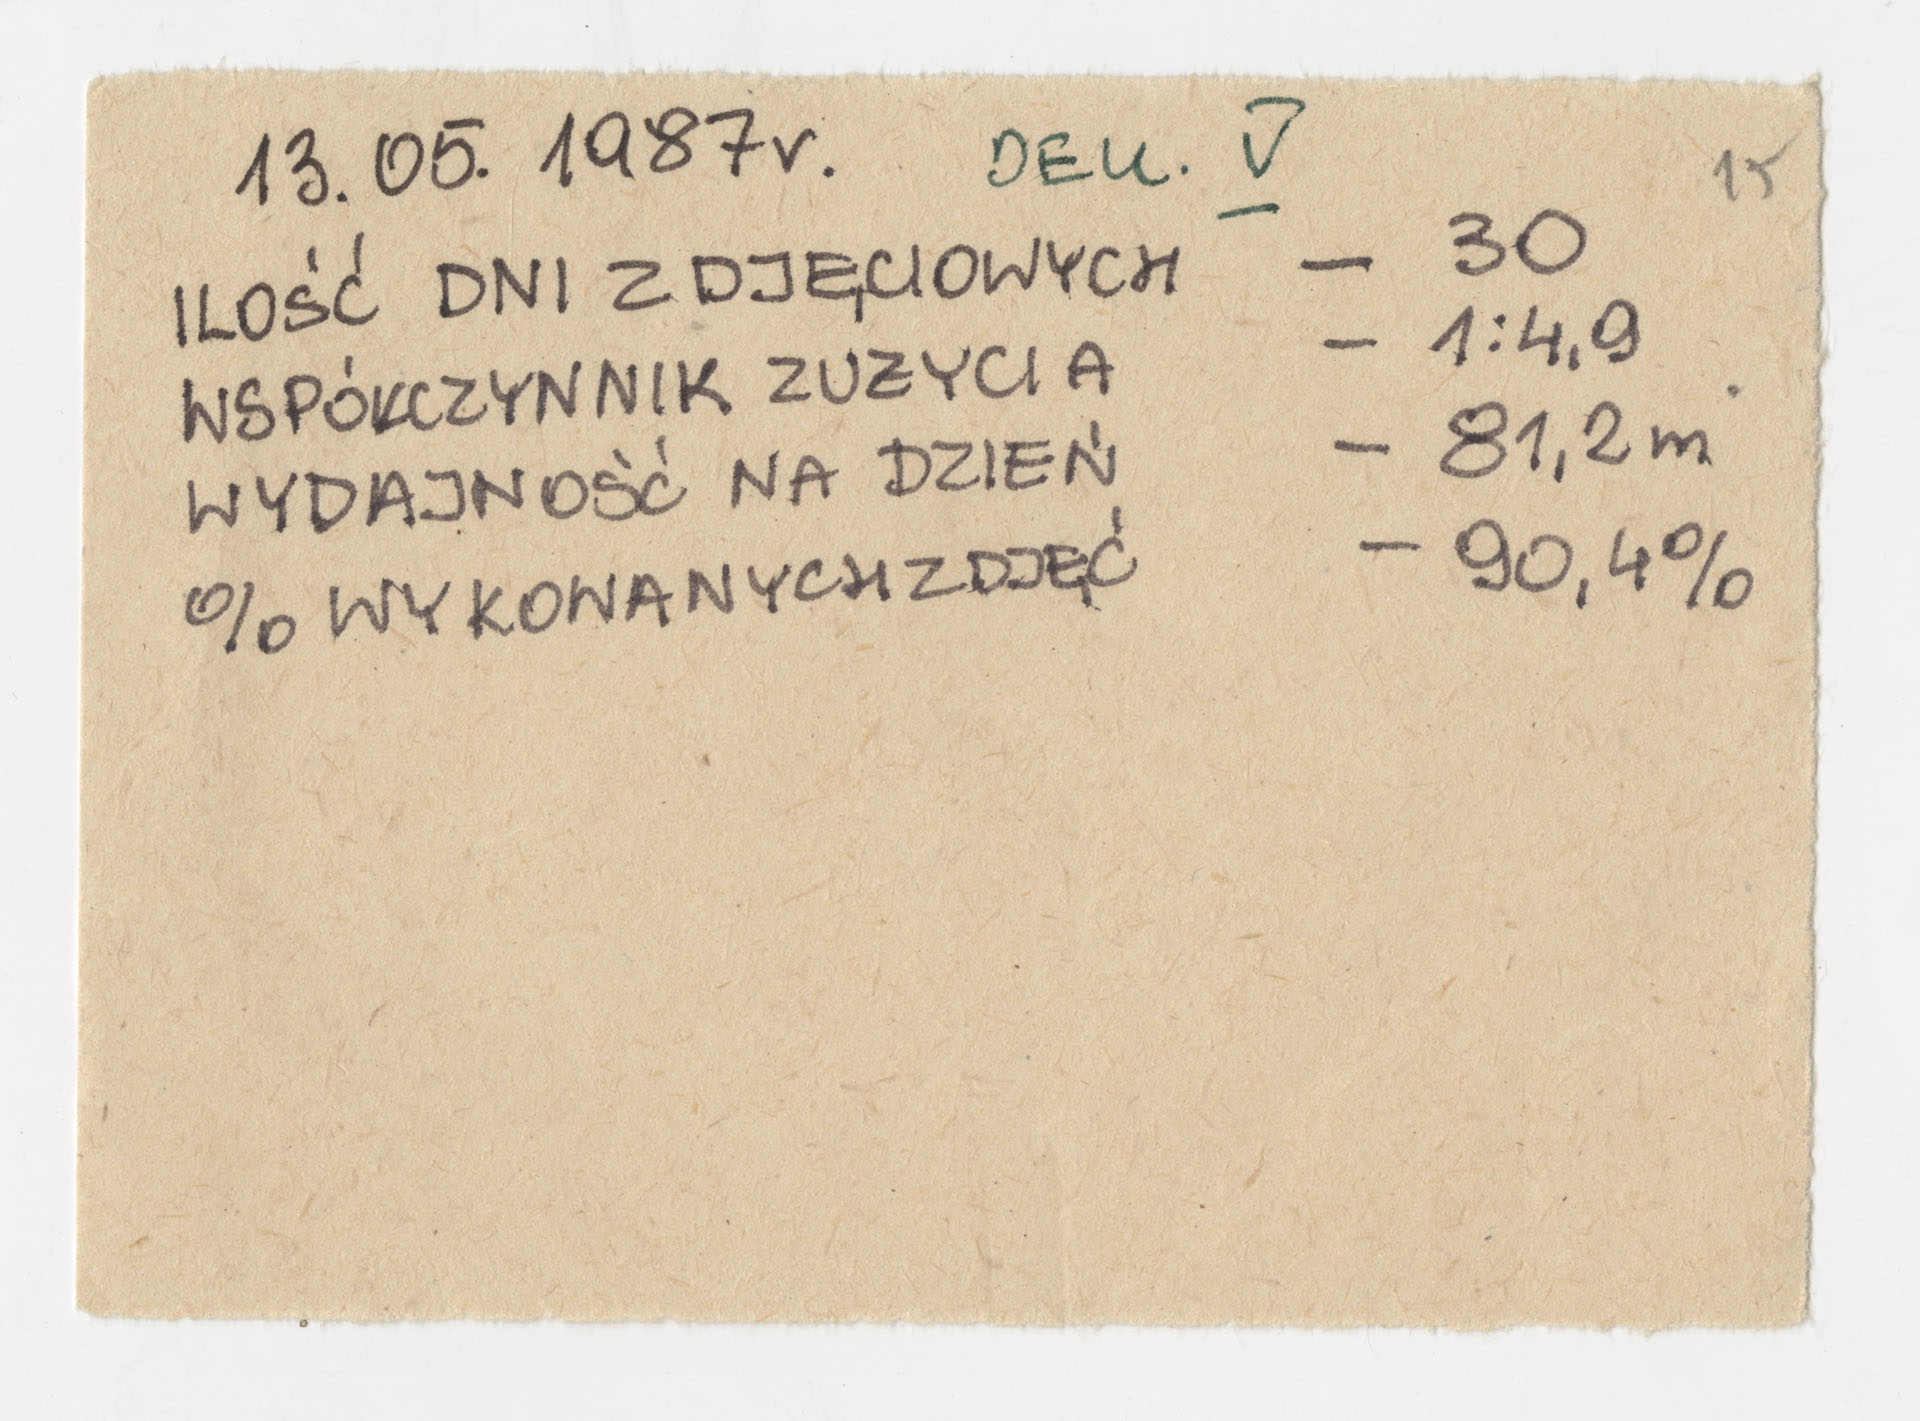 13.05.1987r. DEK. V
15
ILOŚĆ DNI ZDJĘCIOWYCH – 30
WSPÓŁCZYNNIK ZUZYCIA – 1:4,9
WYDAJNOŚĆ NA DZIEŃ – 81,2m
% WYKOWANYCH ZDJĘĆ – 90,4%